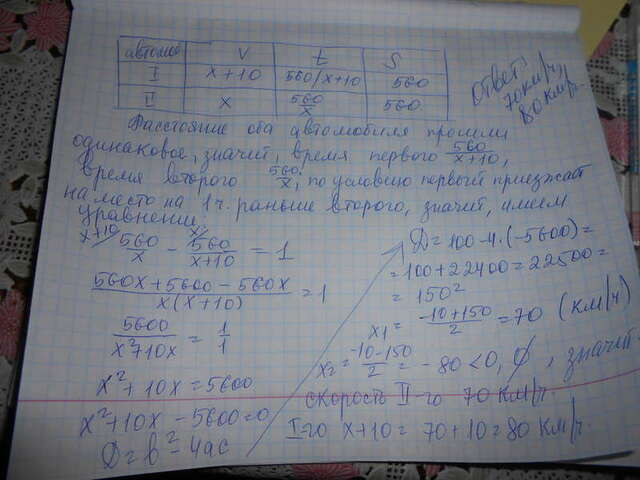 автомоб V t S
I x+10 560/x+10 560
II x 560/x 560
Ответ:
70км/ч,
80км/ч.
Расстояние оба автомобиля прошли
одинаковое, значит, время первого 560/x+10,
время второго 560/x, по условию первый приезжает
на место на 1 ч. раньше второго, значит, имеем
уравнение:
x+10/ 560/x - x/ 560/x+10 = 1
560x+5600-560x/x(x+10) = 1
5600/x²+10x = 1/1
x²+10x=5600
x²+10x-5600=0
D=b²-4ac
D=100-4·(-5600)=
=100+22400=22500=
=150²
x1=-10+150/2=70 (км/ч)
x2=-10-150/2=-80<0, ∅, значит
скорость II-го 70 км/ч.
I-го x+10=70+10=80 км/ч.